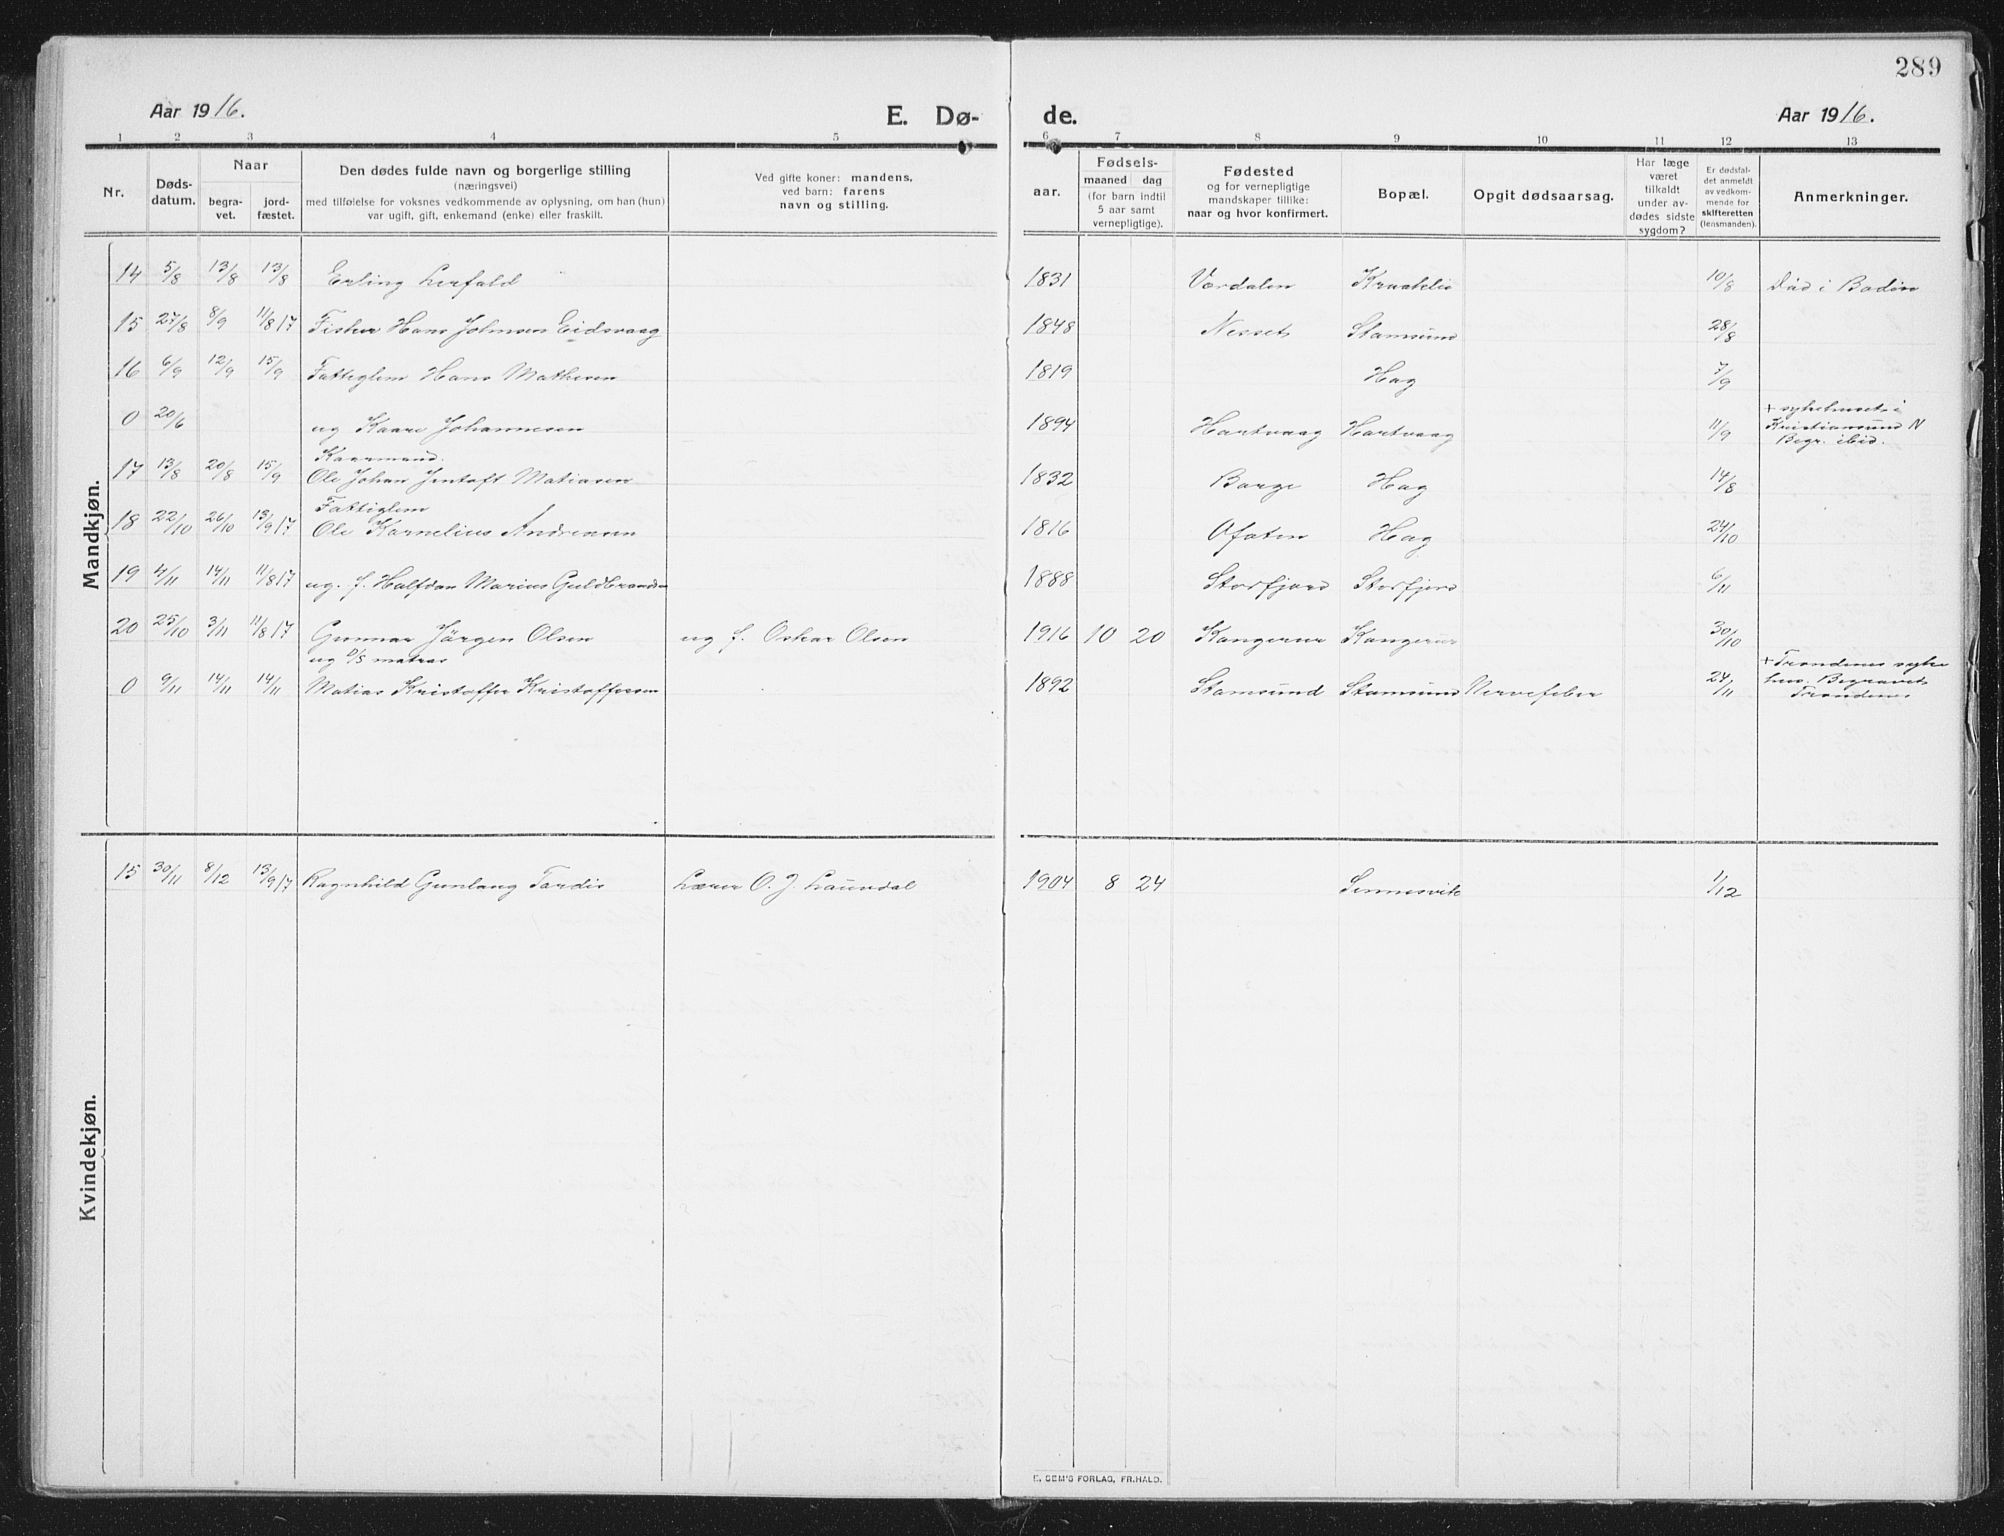 289
Aar 1916.
E. Dø-
de.
Aar 1916.
1 2 3 4 5 6 7 8 9 10 11 12 13
Nr.
Døds-
datum.
Naar
begra-
vet.
jord-
fæstet.
Den dødes fulde navn og borgerlige stilling
(næringsvei)
med tilføielse for voksnes vedkommende av oplysning, om han (hun)
var ugift, gift, enkemand (enke) eller fraskilt.
Ved gifte koner: mandens,
ved barn: farens
navn og stilling.
aar.
Fødsels-
maaned dag
(for barn indtil
5 aar samt
vernepligtige).
Fødested
og for vernepligtige
mandskaper tillike:
naar og hvor konfirmert.
Bopæl.
Opgit dødsaarsag.
Har læge
været
tilkaldt
under av-
dødes sidste
sygdom?
Er dødsfal-
det anmeldt
av vedkom-
mende for
skifteretten
(lensmanden).
Anmerkninger.
Mandkjøn.
14 5/8 13/8 13/8 Erling Lerfald 1831 Værdalen 10/8 Død i Bodin
15 27/8 8/9 11/8 17 Fisker Hans Johnsen Eidsvaag 1848 Nesset Stamsund 28/8
16 6/9 12/9 15/9 Fattiglem Hans Mathisen 1819 Hag 7/9
0 20/6 ug Kaare Johannesen 1894 Hartvaag Hartvaag 11/9
+ sykehuset i
Kristiansund N
Begr. ibid.
Kaarmand.
17 13/8 20/8 15/9 Ole Johan Jentoft Matiasen 1832 Borge Hag 14/8
Fattiglem
18 22/10 26/10 13/9 17 Ole Kornelius Andreasen 1816 Ofoten Hag 24/10
19 4/11 14/11 11/8 17 ug. f. Halfdan Marius Guldbrandsen 1888 Storfjord Storfjord 6/11
20 25/10 3/11 11/8 17 Gunnar Jørgen Olsen ug f. Oskar Olsen 1916 10 20 Kangerur Kangerur 30/10
ug D/S matros
0 9/11 14/11 14/11 Matias Kristoffer Kristoffersen 1892 Stamsund Stamsund Nervefeber 24/11
+ Trondenes syke
hus. Begravet
Trondenes
Kvindekjøn.
15 30/11 8/12 13/9 17 Ragnhild Gunlaug Tordis Lærer O. J. Laundal 1904 8 24 Sennesvik 1/12
E. SEM'S FORLAG, FR.HALD.